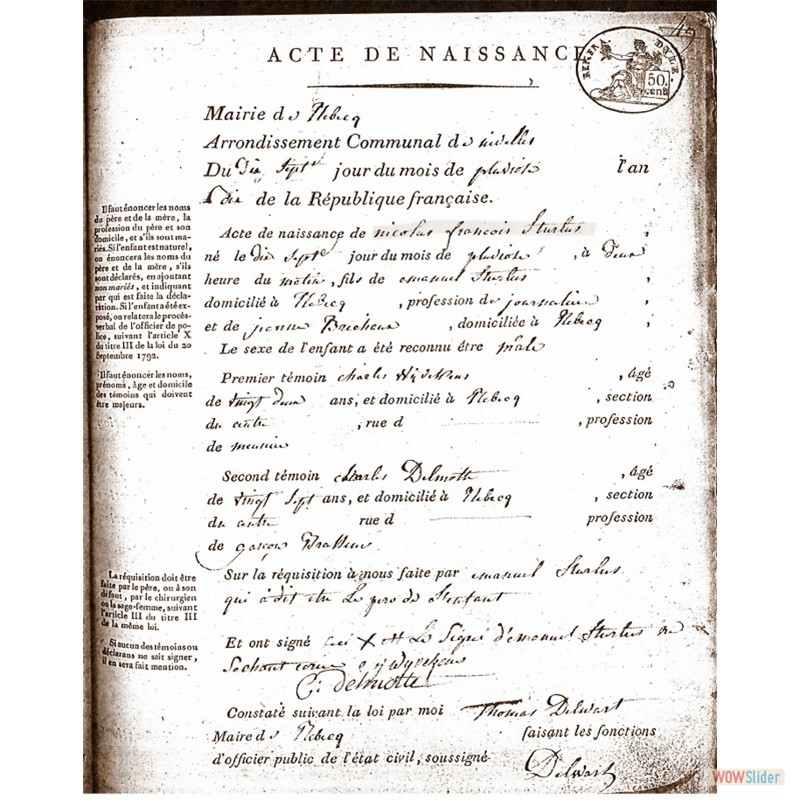 ACTE DE NAISSANCE
50.
cent
Mairie de Rebecq
Arrondissement Communal de nivelles
Du dix Sept jour du mois de pluviose l'an
dix de la République française.
Il faut énoncer les noms
du père et de la mère, la
profession du père et son
domicile, et s'ils sont ma-
riés. Si l'enfant est naturel,
on énoncera les noms du
père et de la mère, s'ils
sont déclarés, en ajoutant
non mariés, et indiquant
par qui est faite la décla-
ration. Si l'enfant a été ex-
posé, on relatera le procès-
verbal de l'officier de po-
lice, suivant l'article X
du titre III de la loi du 20
Septembre 1792.
Acte de naissance de nicolas francois Sturlus ,
né le dix Sept jour du mois de pluviose , à Deux
heure du matin, fils de emanuel Sturlus
domicilié à Rebecq , profession de journalier ,
et de jeanne , domiciliée à Rebecq ,
Le sexe de l'enfant a été reconnu être mâle
Il faut énoncer les noms,
prénoms, âge et domicile
des témoins qui doivent
être majeurs.
Premier témoin charles , âgé
de vingt deux ans, et domicilié à Rebecq , section
du centre , rue d , profession
de meunier
Second témoin charles Delmotte , âgé
de vingt Sept ans, et domicilié à Rebecq , section
du centre rue d profession
de garçon Brasseur
La réquisition doit être
faite par le père, ou à son
défaut, par le chirurgien
ou la sage-femme, suivant
l'article III du titre III
de la même loi.
Sur la réquisition à nous faite par emanuel Sturlus
qui à dit etre Le pere de L'enfant
Si aucun des témoins ou
déclarans ne sait signer,
il en sera fait mention.
Et ont signé X Le Signé d'emanuel Sturlus ne
Sachant
C: delmotte
Constaté suivant la loi par moi Thomas Delwart
Maire de Rebecq faisant les fonctions
d'officier public de l'état civil, soussigné
Delwart
WOWSlider